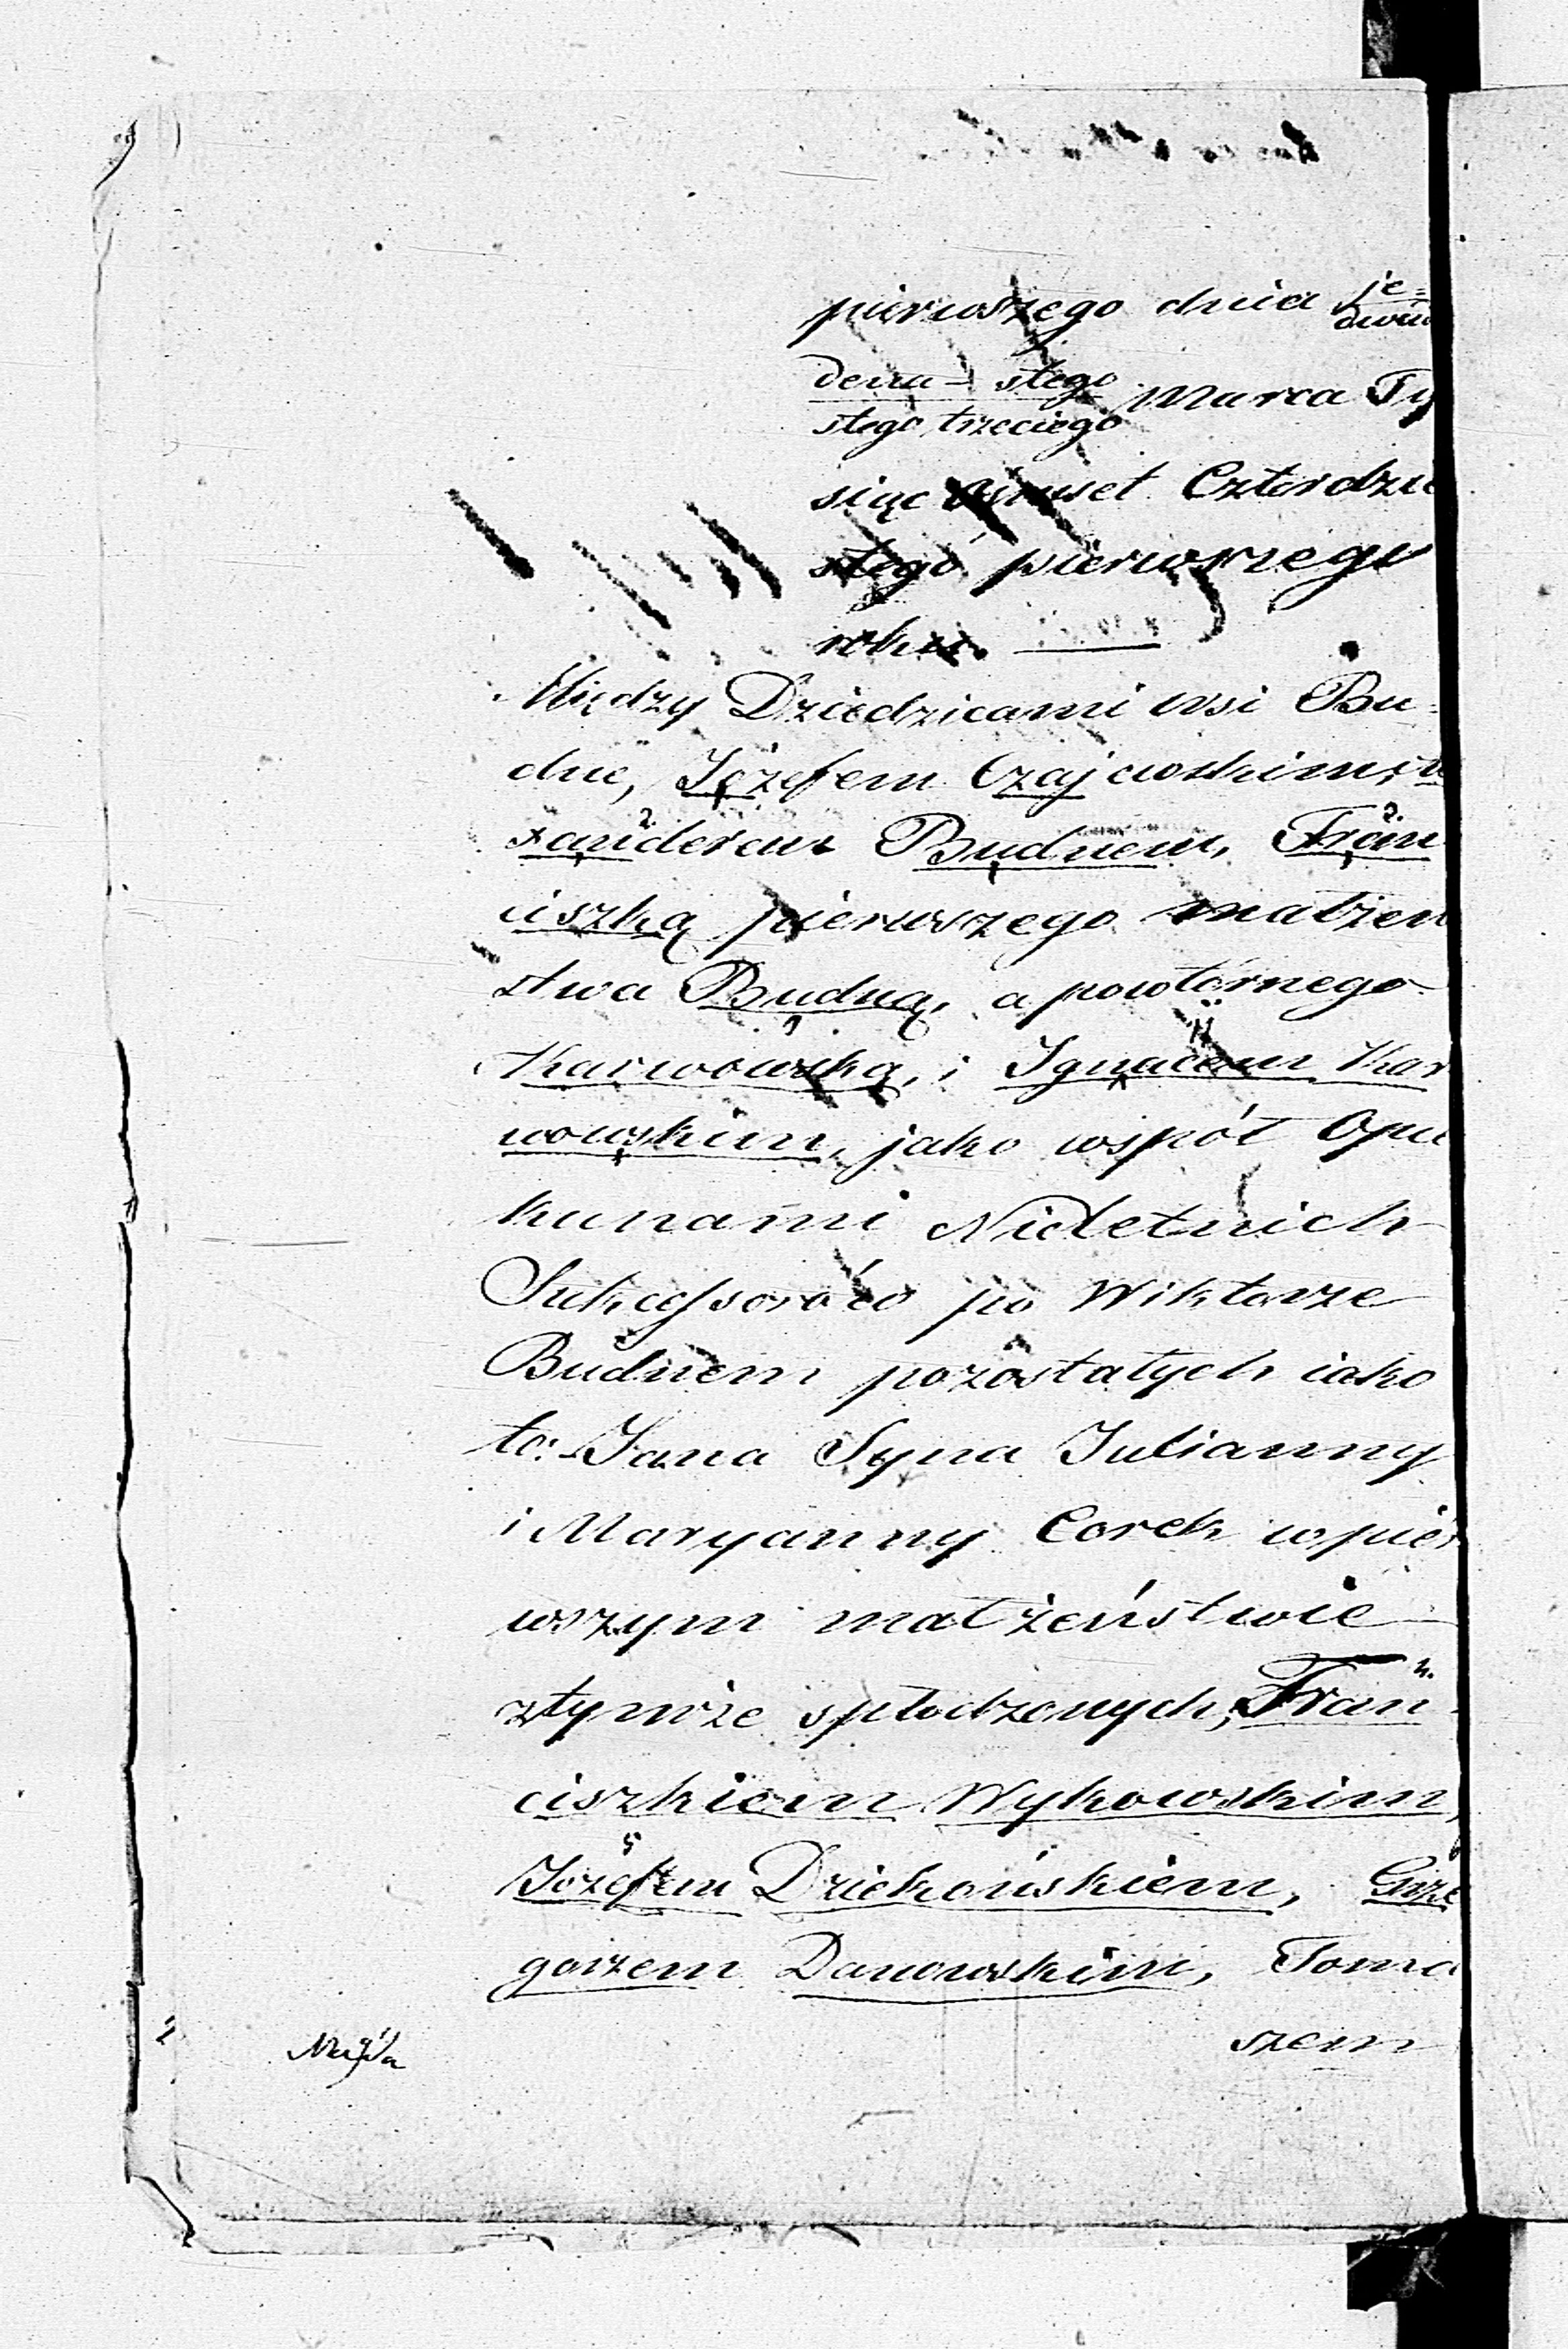 pierwszego dnia je=
dwu
dena= stego Marca Ty
stego trzeciego
siąc Ośmset Czterdzie
stego pierwszego
roku.
Między Dziedzicami wsi Bu=
dne, Józefem Czajewskim,
xandrem Budnem, Fran
ciszką pierwszego małżeń
stwa Budną, a powtórnego
Karwowską, i Ignacem Kar
wowskim, jako współ Opie
kunami Nieletnich
Sukcessorów po Wiktorze
Budnem pozostałych iako
to: Jana Syna Julianny
i Maryanny Corek w pier
wszym małżeństwie
z tymże spłodzonych, Fran
ciszkiem Wykowskim,
Józefem Dziekońskiem, Grze
gorzem Danowskim, Toma
szem